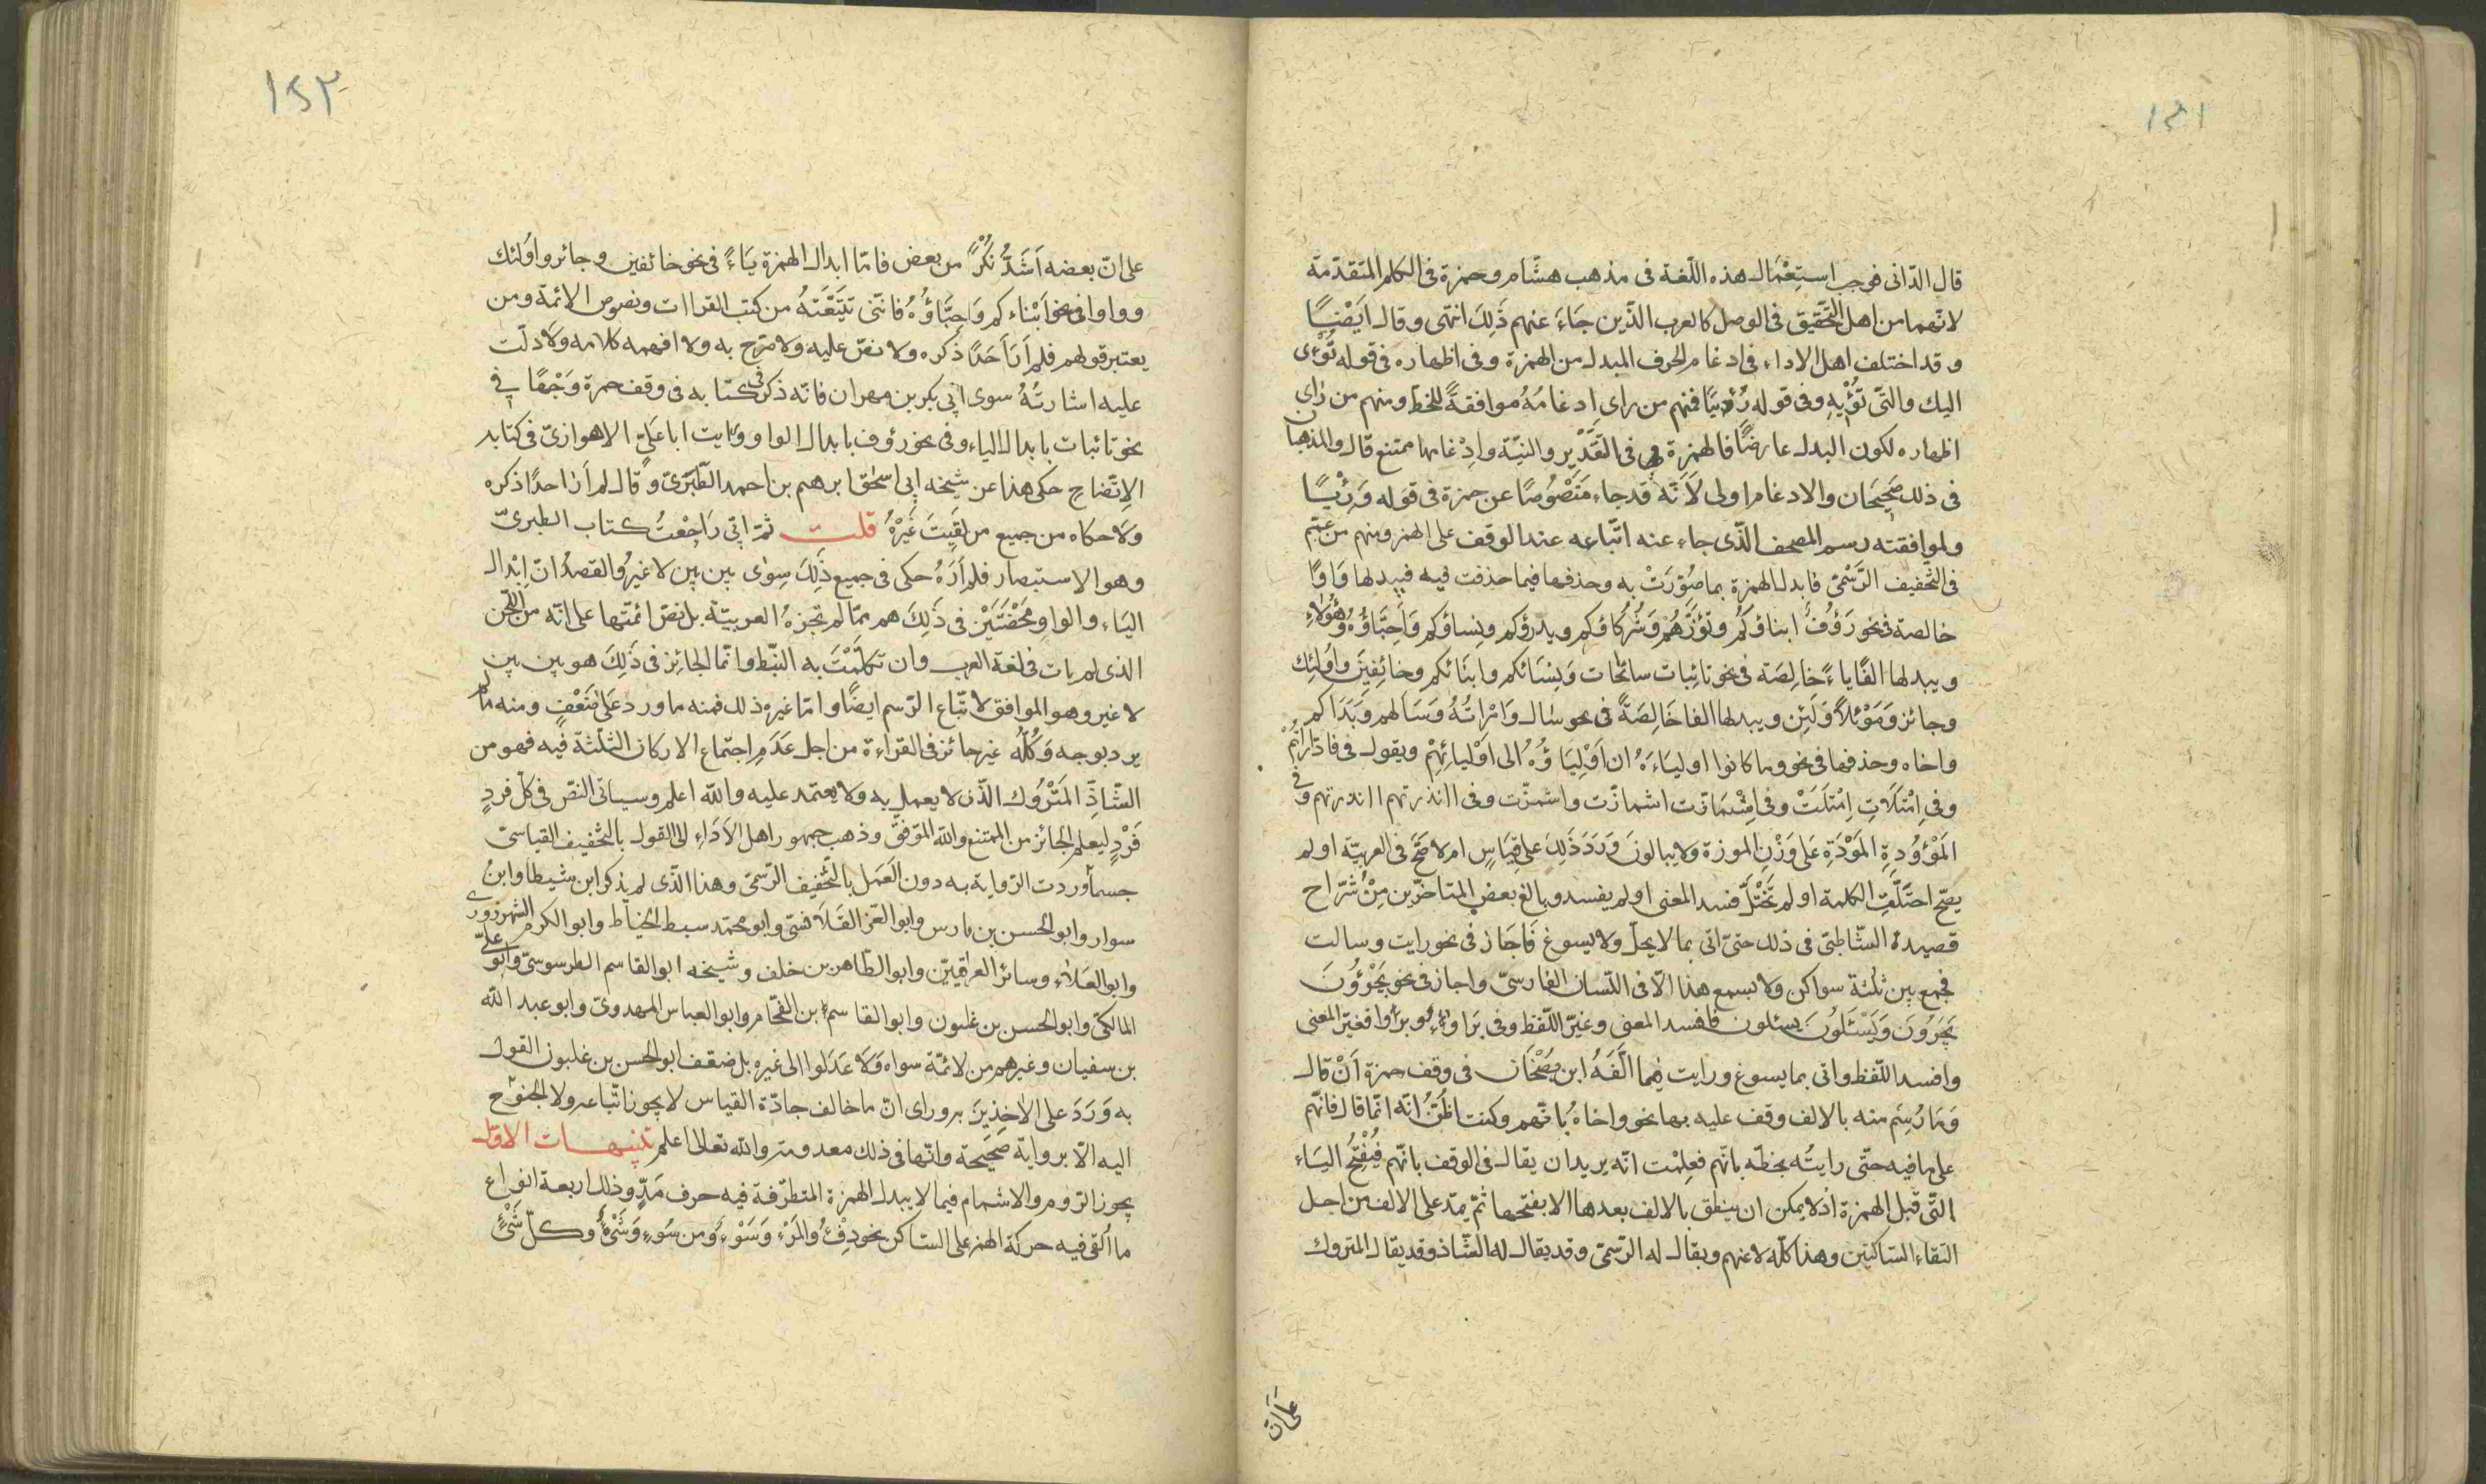 ١٤١
قال الدّانى فوجب استِعْمَال هذه اللّغة فى مذهب هشّام وحمزة فى الكلم المتقدّمة
لانّهما من اهل التّحقيق فى الوصل كالعرب الذّين جَاءَ عنهم ذَلِكَ انتهى وقال اَيَضْنًا
وقد اختلف اهل الاداء فى ادغام الحرف المبدل من الهمزة وفى اظهاره فى قوله تُؤْى
اليك والتّى تُؤْيِهِ وفى قوله رُؤيَا فمنهم من راى اِدغامُهُ موافقةً للخطّ ومنهم من راى
اظهاره لكون البدل عارضًا فالهمزة هى فى التَّقَدْيِر والنيّة واِدْغامها ممتنع قال والمذهبا ن
فى ذلك صَحِيحَان والادغام اولى لاَنَّه قد جاء مَنْصُوُصًا عن حمزة فى قوله وَرِئيًا
ولموافقته رسم المصحف الذّى جاء عنه اتّباعه عند الوقف على الهمز ومنهم من عمّم
فى التّخفيف الرّسْمىّ فابدل الهمزة بما صُوِّرَتْ به وحذفها فيما حذفت فيه فيبدلها وَاوًا
خالصة فى نحو رَؤُفُ ابناؤكُم وتؤزّهُمْ وَشُركَاؤكم ويذرؤكم ونِساؤكم وَاَحِبَّاؤُهُ وَهٰؤُلاءِ
ويبدلها الفًا ياءً خَالِصَة فى نحو تائِبات سائحات وَنِسَائكم وابنَائكم وخائِفيَنَ واُولئِك
وجائز وَمَوْئلاً وَلَئِن ويبدلها الفا خَالِصَةً فى نحو سال وَامْرَاتُهُ وَسَالهم وَبَدَاكم
واخاه وحذفها فى نحو وما كانوا اولياءَهُ ان اَوْلِيَاؤُهُ الى اَوْليائِهِمْ ويقول فى فادّارَاتُمْ
وفى اِمْتَلَاتِ اِمْتَلَتْ وفى اِشْمَازّت اشمازّت واشمزّت وفى اانذرتهم اانذرتهم وفى
المَوْؤُدةِ المَوْدَةِ عَلى وَزْنِ الموزة ولا يبالونَ وَرَدَ ذَلِكَ على قِيَاسٍ ام لا صَحَّ فى العربيّة او لم
يصّح اختَلَّتِ الكلمة او لم تَخْتَلَّ فسد المعنى او لم يفسد وبالغ بعض المتاخرّين مِنْ شرّاح
قصيدة الشّاطبىّ فى ذلك حتىّ اتى بما لا يحلّ ولا يسوغ فَاجَاز فى نحو رايت وسالت
فجمع بين ثلثة سواكن ولا يسمع هذا الاّ فى اللّسان الفارسىّ واجاز فى نحو يَجْؤُونَ
يَجَرُونَ وَيَسْئَلُونَ يسئلون فافسد المعنى وغيّر اللّفظ وفى بَراوءُ بُرَاؤ فغيّر المعنى
وافسد اللّفظ واتى بما يسوغ ورايت فِيما الَّفَهُ ابن بَصْخَان فى وقف حمزة اَنْ قال
وَمَا رُسِمَ منه بالالف وقف عليه بها نحو واخاهُ بُانّهم وكنت اظنُّ انّه انّما قال فانّهم
على ما فيه حتّى رايتُه بخطّه بانّهم فعِلمْت انّه يريد ان يقال فى الوقف بانّهم فَيُفْتَحُ اليَاءِ
التّى قبل الهمزة اذ لا يمكن ان ينطق بالالف بعدها الا بفتحها ثمّ يمدّ على الالف من اجل
التقاء السّاكنين وهذا كلّه لا عنهم ويقال له الرّسمىّ وقد يقال له الشّاذ وقد يقال المتروك
على ان
١٤٢
على انّ بعضه اَشَدُّ نُكْرًا من بعض فامّا ابدال الهمزة يَاءً فى نحو خائفين وجائر واُولئك
وواوا فى نحو اَبْناءكم وَاحِبَّاؤُهُ فانّنى تَتَبَّعْتهُ من كتب القراات ونصوص الائمّة ومن
يعتبر قولهم فلم اَرَ اَحَدًا ذكره ولا نصّ عليه ولا صرّح به ولا افهمه كلامه ولَا دلّت
عليه اشارتُهُ سوى ابى بكر بن مهران فانّه ذكر فى كتابه فى وقف حمزة وَجْهًا فى
نحو تائبات بابدال الياء وفى نحو رؤف بابدال الواو ورايت ابا عَلىّ الاهوازىّ فى كتابه
الاِتّضاح حكى هذا عن شيخه ابى اسحٰق ابرهيم بن احمد الطّبَرىّ وقال لم اَرَ احدًا ذكره
ولَا حكاه من جميع من لَقِيَتَ غَيْرهُ قلت ثمّ اِنّى رَاجَعْتُ كتاب الطبرىّ
وهو الاستبصار فلم اَرَهُ حكى فى جميع ذَلِكَ سِوٰى بين بين لا غير والقصدُ انّ اِبْدال
اليَاءِ والواو مَحْضَتَيْن فى ذَلِكَ هم ممّا لم تجزهُ العربيّة بل نصّ ائمّتها على انّه من اللّحن
الذى لم يات فى لغة العرب وان تكلّمَتْ به النّبط وانّما الجائز فى ذَلِكَ هو بين بين
لا غير وهو الموافق لاتّباع الرّسم ايضًا وامّا غيره ذلك فمنه ما ورد عَلى ضَعْفٍ ومنه ما لم
يرد بوجه وَكُلّه غير جائز فى القراءة من اجل عَدَمِ اجتماع الاركان الثلثة فيه فهو من
الشّاذِّ المَتْرُوك الذّى لا يعمل به ولَا يعتمد عليه واللّه اعلم وسياتى النصّ فى كلّ فردٍ
فَرْدٍ ليعلم الجائز من الممتنع واللّه الموّفق وذهب جمهور اهل الاَدَاءِ الى القول بالتّخفيف القياسىّ
حسمأ وردَت الرّواية به دون العَمَل بالتّخفيف الرّسمىّ وهذا الذّى لم يذكر ابن شيطا وابنُ
سوار وابو الحسن بن فارس وابو العّز القَلَانسىّ وابو محمّد سبط الخيّاط وابو الكرم الشهرزورى
وابو العَلاءِ وسائر العراقيّين وابو الطّاهر بن خلف وشيخه ابو القاسم الطرسوسىّ وابو علىّ
المالكىّ وابو الحسن بن غلبون وابو القاسم بن الفّحام وابو العباس المهدوىّ وابو عبد اللّه
بن سفيان وغيرهم من لائمّة سواه وَلَا عَدَلوا الى غيره بل ضعّف ابو الحسن بن غلبون القول
به وَرَدَ على الاخِذيِنَ به وراى انّ ما خالف جادّة القياس لا يجوز اتّباعه ولا الجُنوُح
اليه الاّ برواية صَحِيَحة وانّها فى ذلك معدومة واللّه تعالى اعلم تنبيهات الاوّل
يجوز الرّوم والاشمام فيما لا يبدل الهمزة المتطرّفة فيه حرف مَدٍّ وذلك اربعة انواع
ما اُلقى فيه حركة الهمز على السّاكن نحو دِفْءُ والمَرْءِ وَسَوْءٍ وَمن سَوءٍ وَشَىْءُ وكلّ شَئٍْ